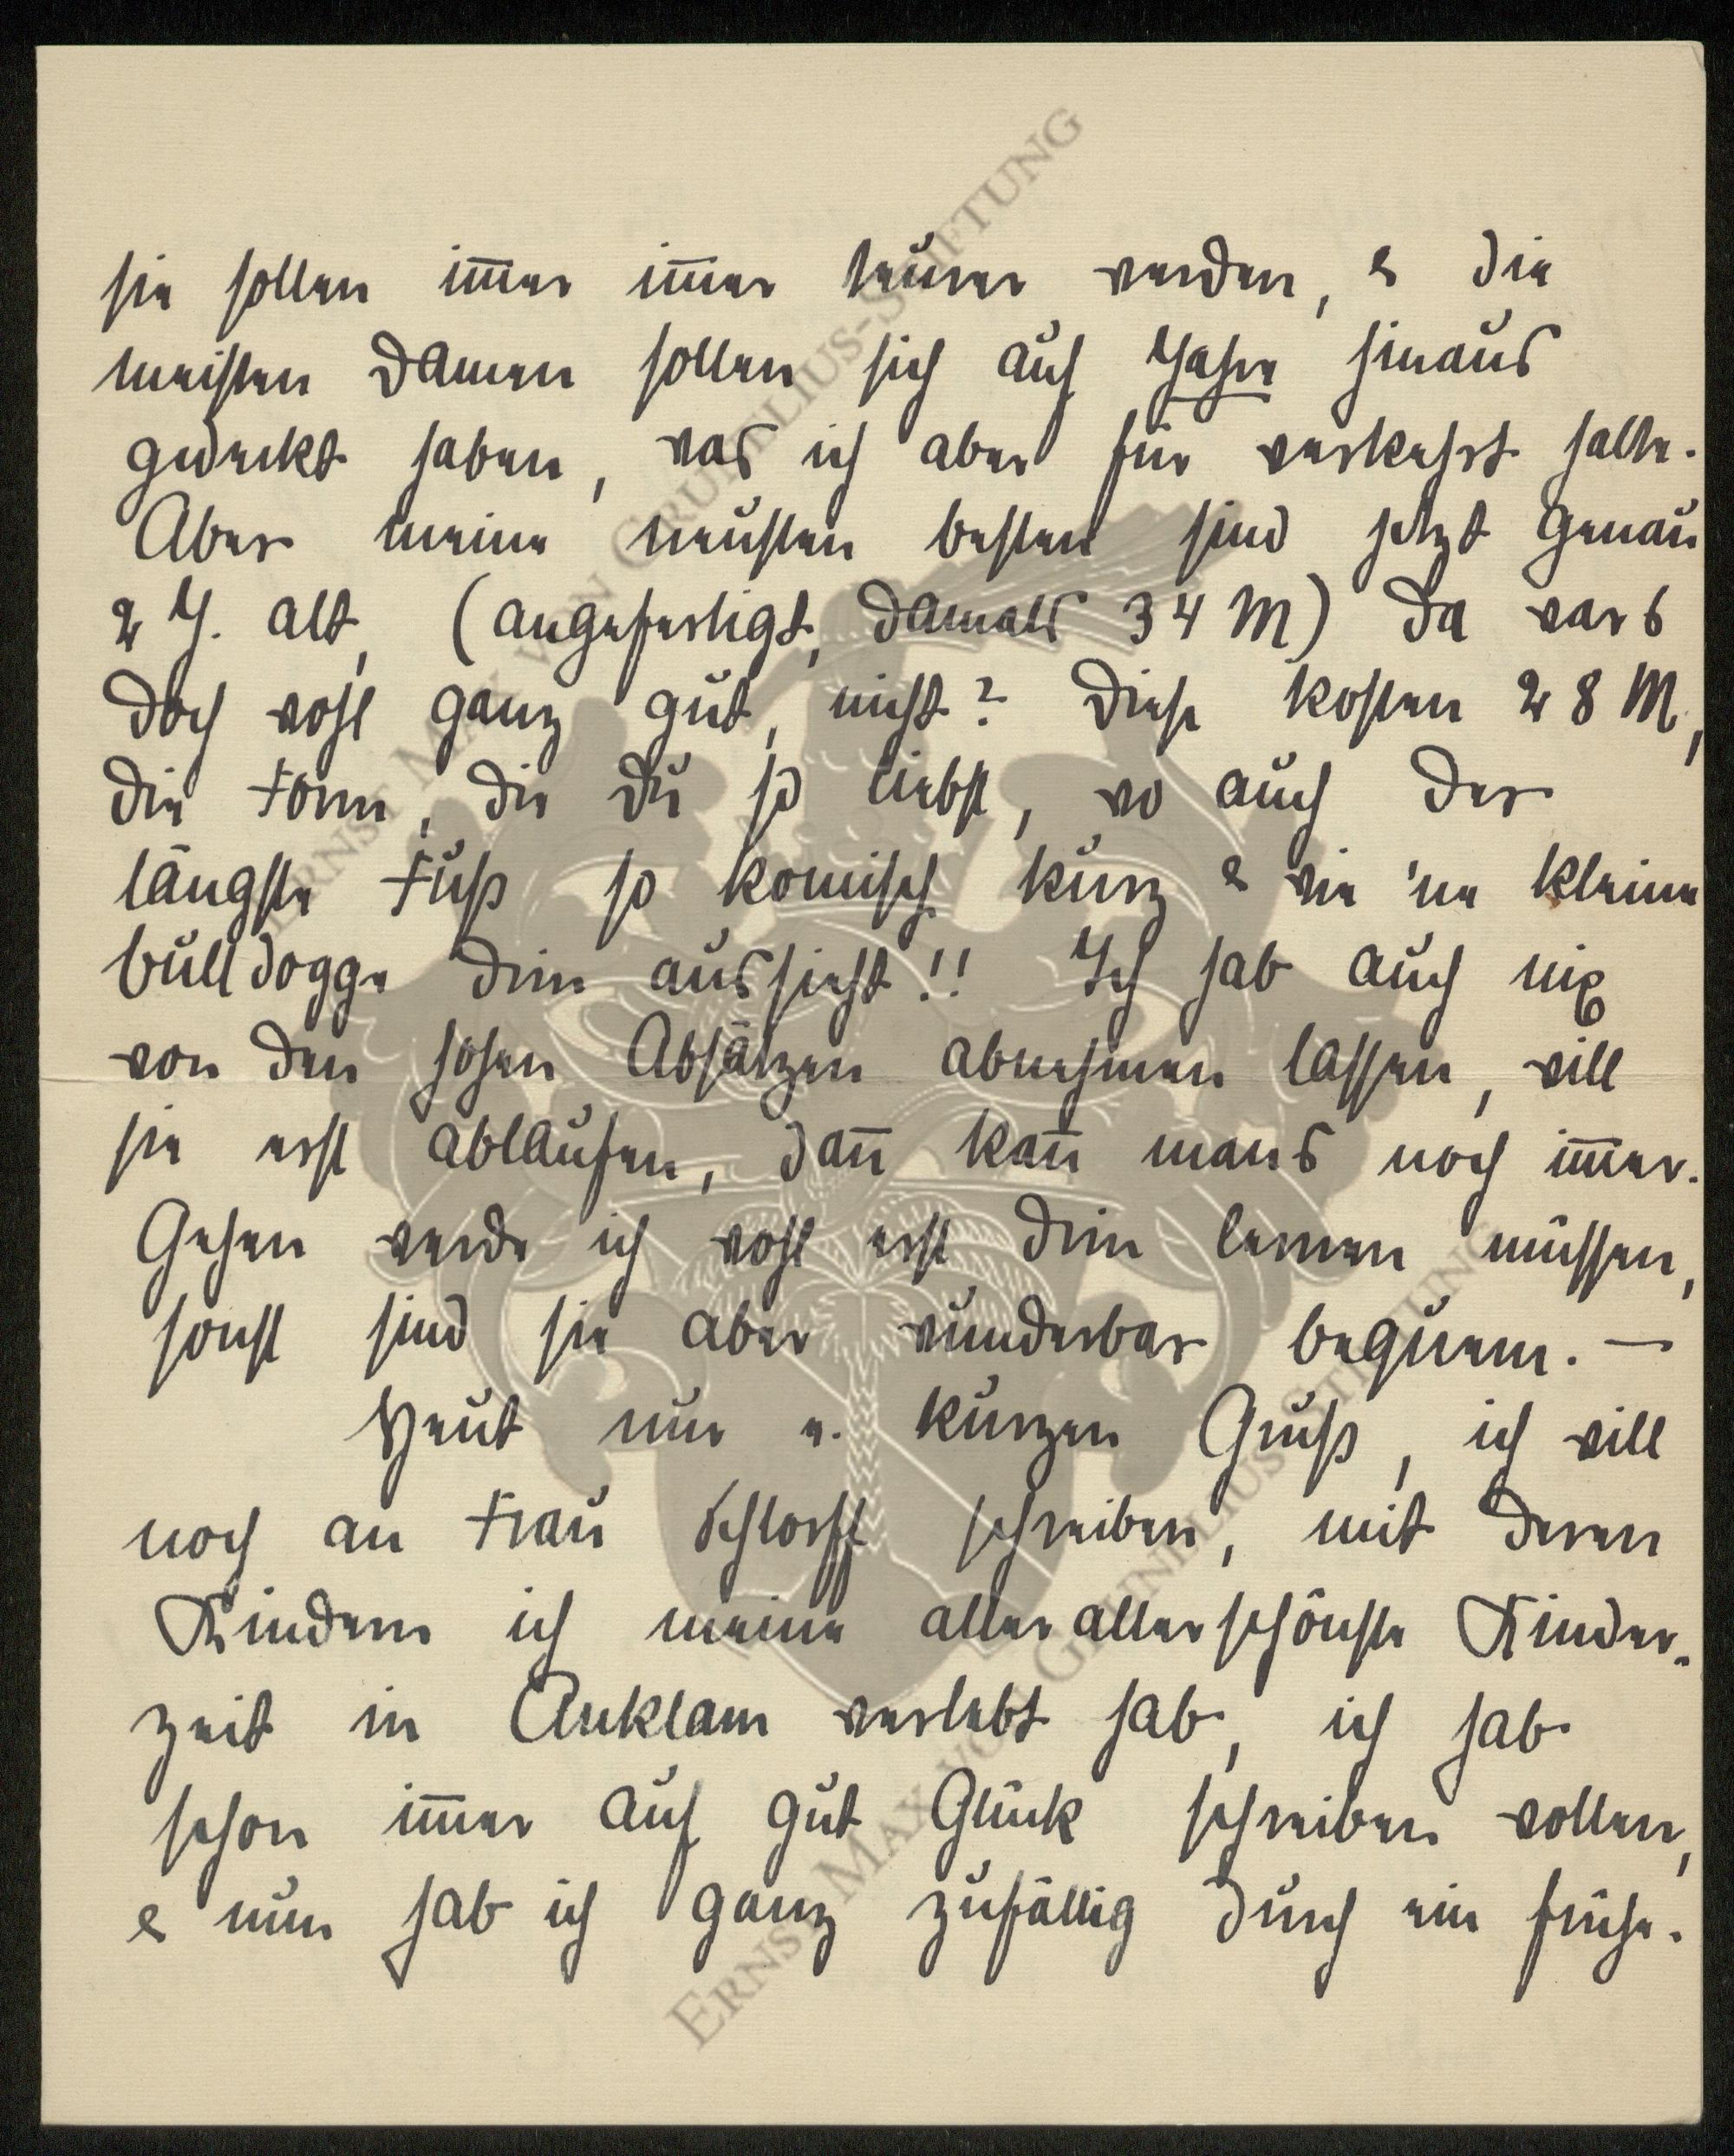 sie sollen im̄er im̄er teurer werden, & die
meisten Damen sollen sich auf Jahre hinaus
gedeckt haben, was ich aber für verkehrt halte.
Aber meine neusten besten sind jetzt genau
2 J. alt, (angefertigt, damals 34 M) da wars
doch wohl ganz gut, nicht? Diese kosten 28 M,
die Form, die Du so liebst, wo auch der
längste Fuß so komisch kurz & wie 'ne kleine
bulldogge drin aussieht!! Ich hab auch nix
von den hohen Absätzen abnehmen lassen, will
sie erst ablaufen, dan̄ kan̄ mans noch im̄er.
Gehen werde ich wohl erst drin lernen müssen,
sonst sind sie aber wunderbar bequem. —
Heut nur e. kurzen Gruß, ich will
noch an Frau schreiben, mit deren
Kindern ich meine allerallerschönste Kinder-
zeit in Anklam verlebt hab, ich hab
schon im̄er auf gut Glück schreiben wollen,
& nun hab ich ganz zufällig durch ein frühe-
ERNST MAX VON GRUNELIUS-STIFTUNG
ERNST MAX VON GRUNELIUS-STIFTUNG